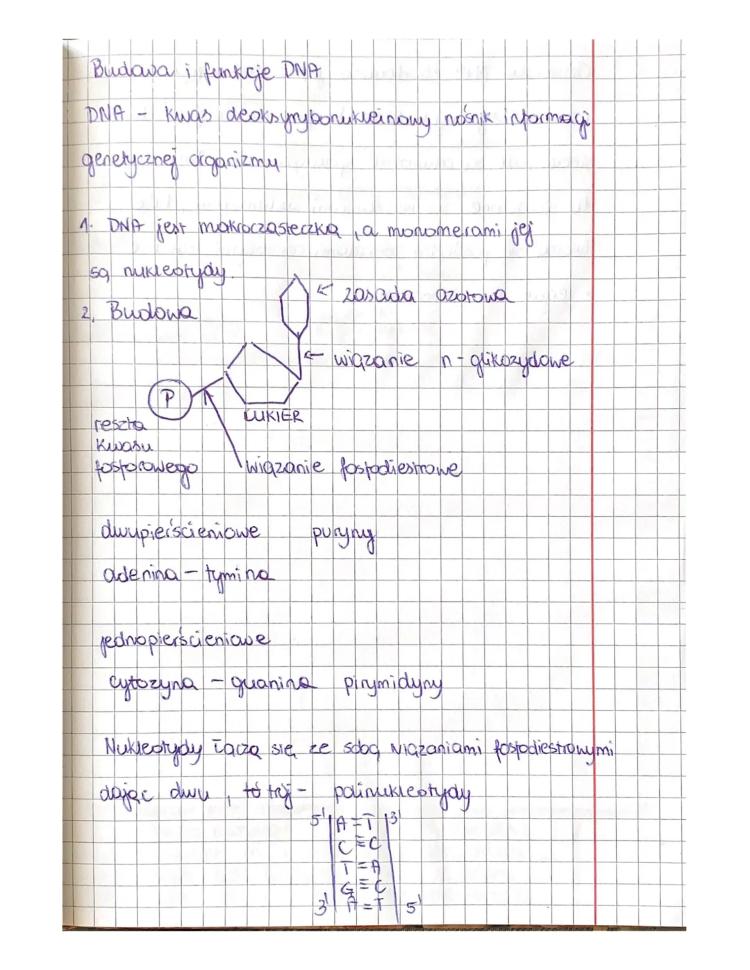 Budowa i funkcje DNA
DNA - kwas deoksyrybonukleinowy nośnik informacji
genetycznej organizmu
1. DNA jest makrocząsteczką, a monomerami jej
są nukleotydy
2. Budowa
zasada azotowa
wiązanie n-glikozydowe
P
CUKIER
reszta
kwasu
fosforowego
wiązanie fosfodiestrowe
dwupierścieniowe puryny
adenina - tymina
jednopierścieniowe
cytozyna - guanina pirymidyny
Nukleotydy łączą się ze sobą wiązaniami fosfodiestrowymi
dając dwu, trój - polinukleotydy
5' A=T 3'
C≡C
T=A
G≡C
3' A=T 5'